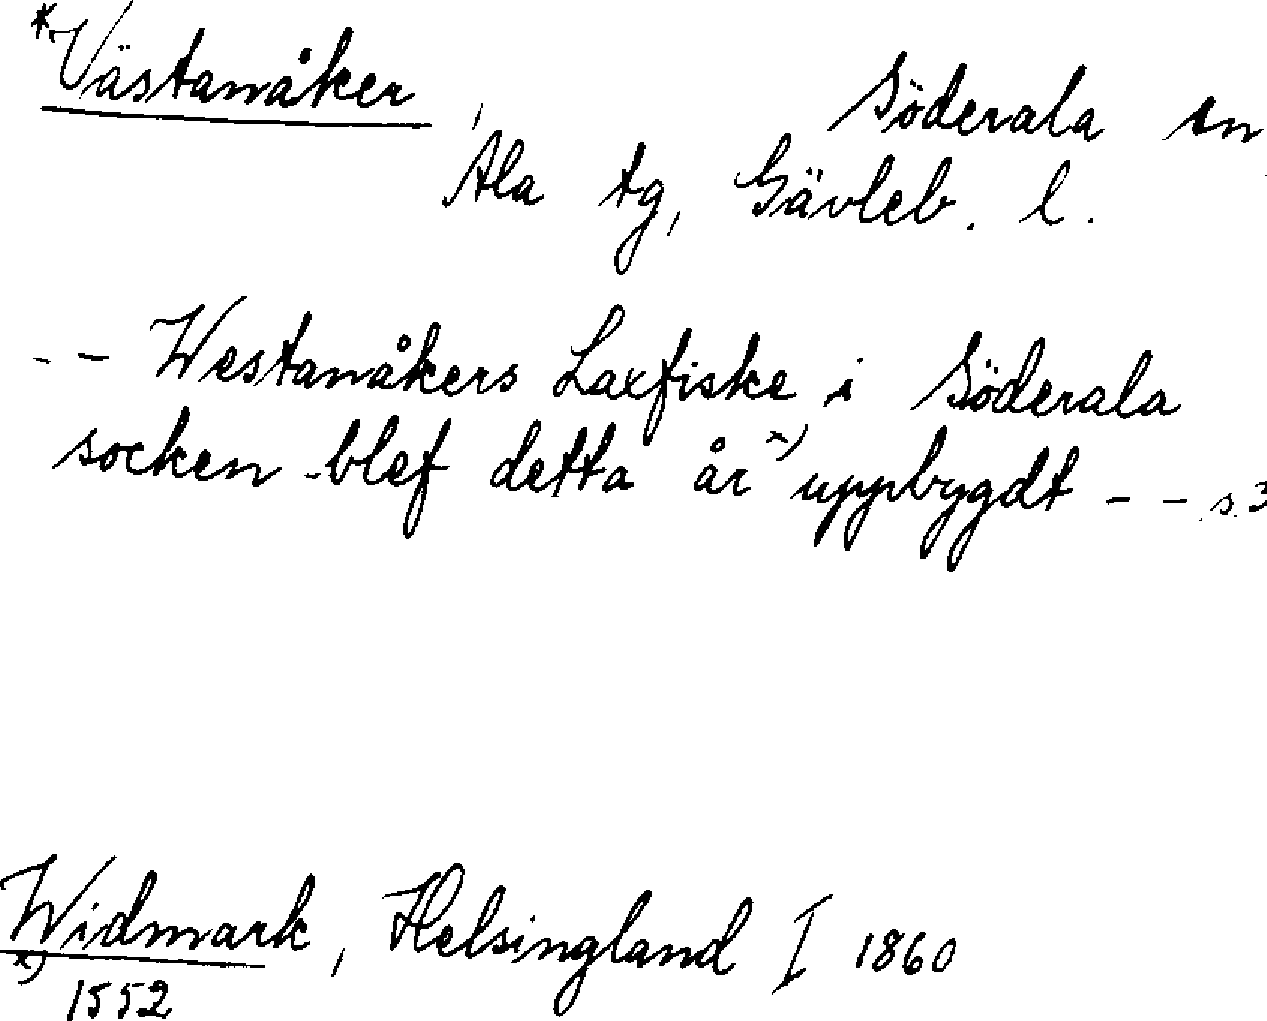 *Västanåker, Söderala sn
Ala tg, Gävleb. l.
- - Westanåkers Laxfiske i Söderala
socken blef detta år x) uppbygdt - - s. 3
Widmark, Helsingland I 1860
x) 1552